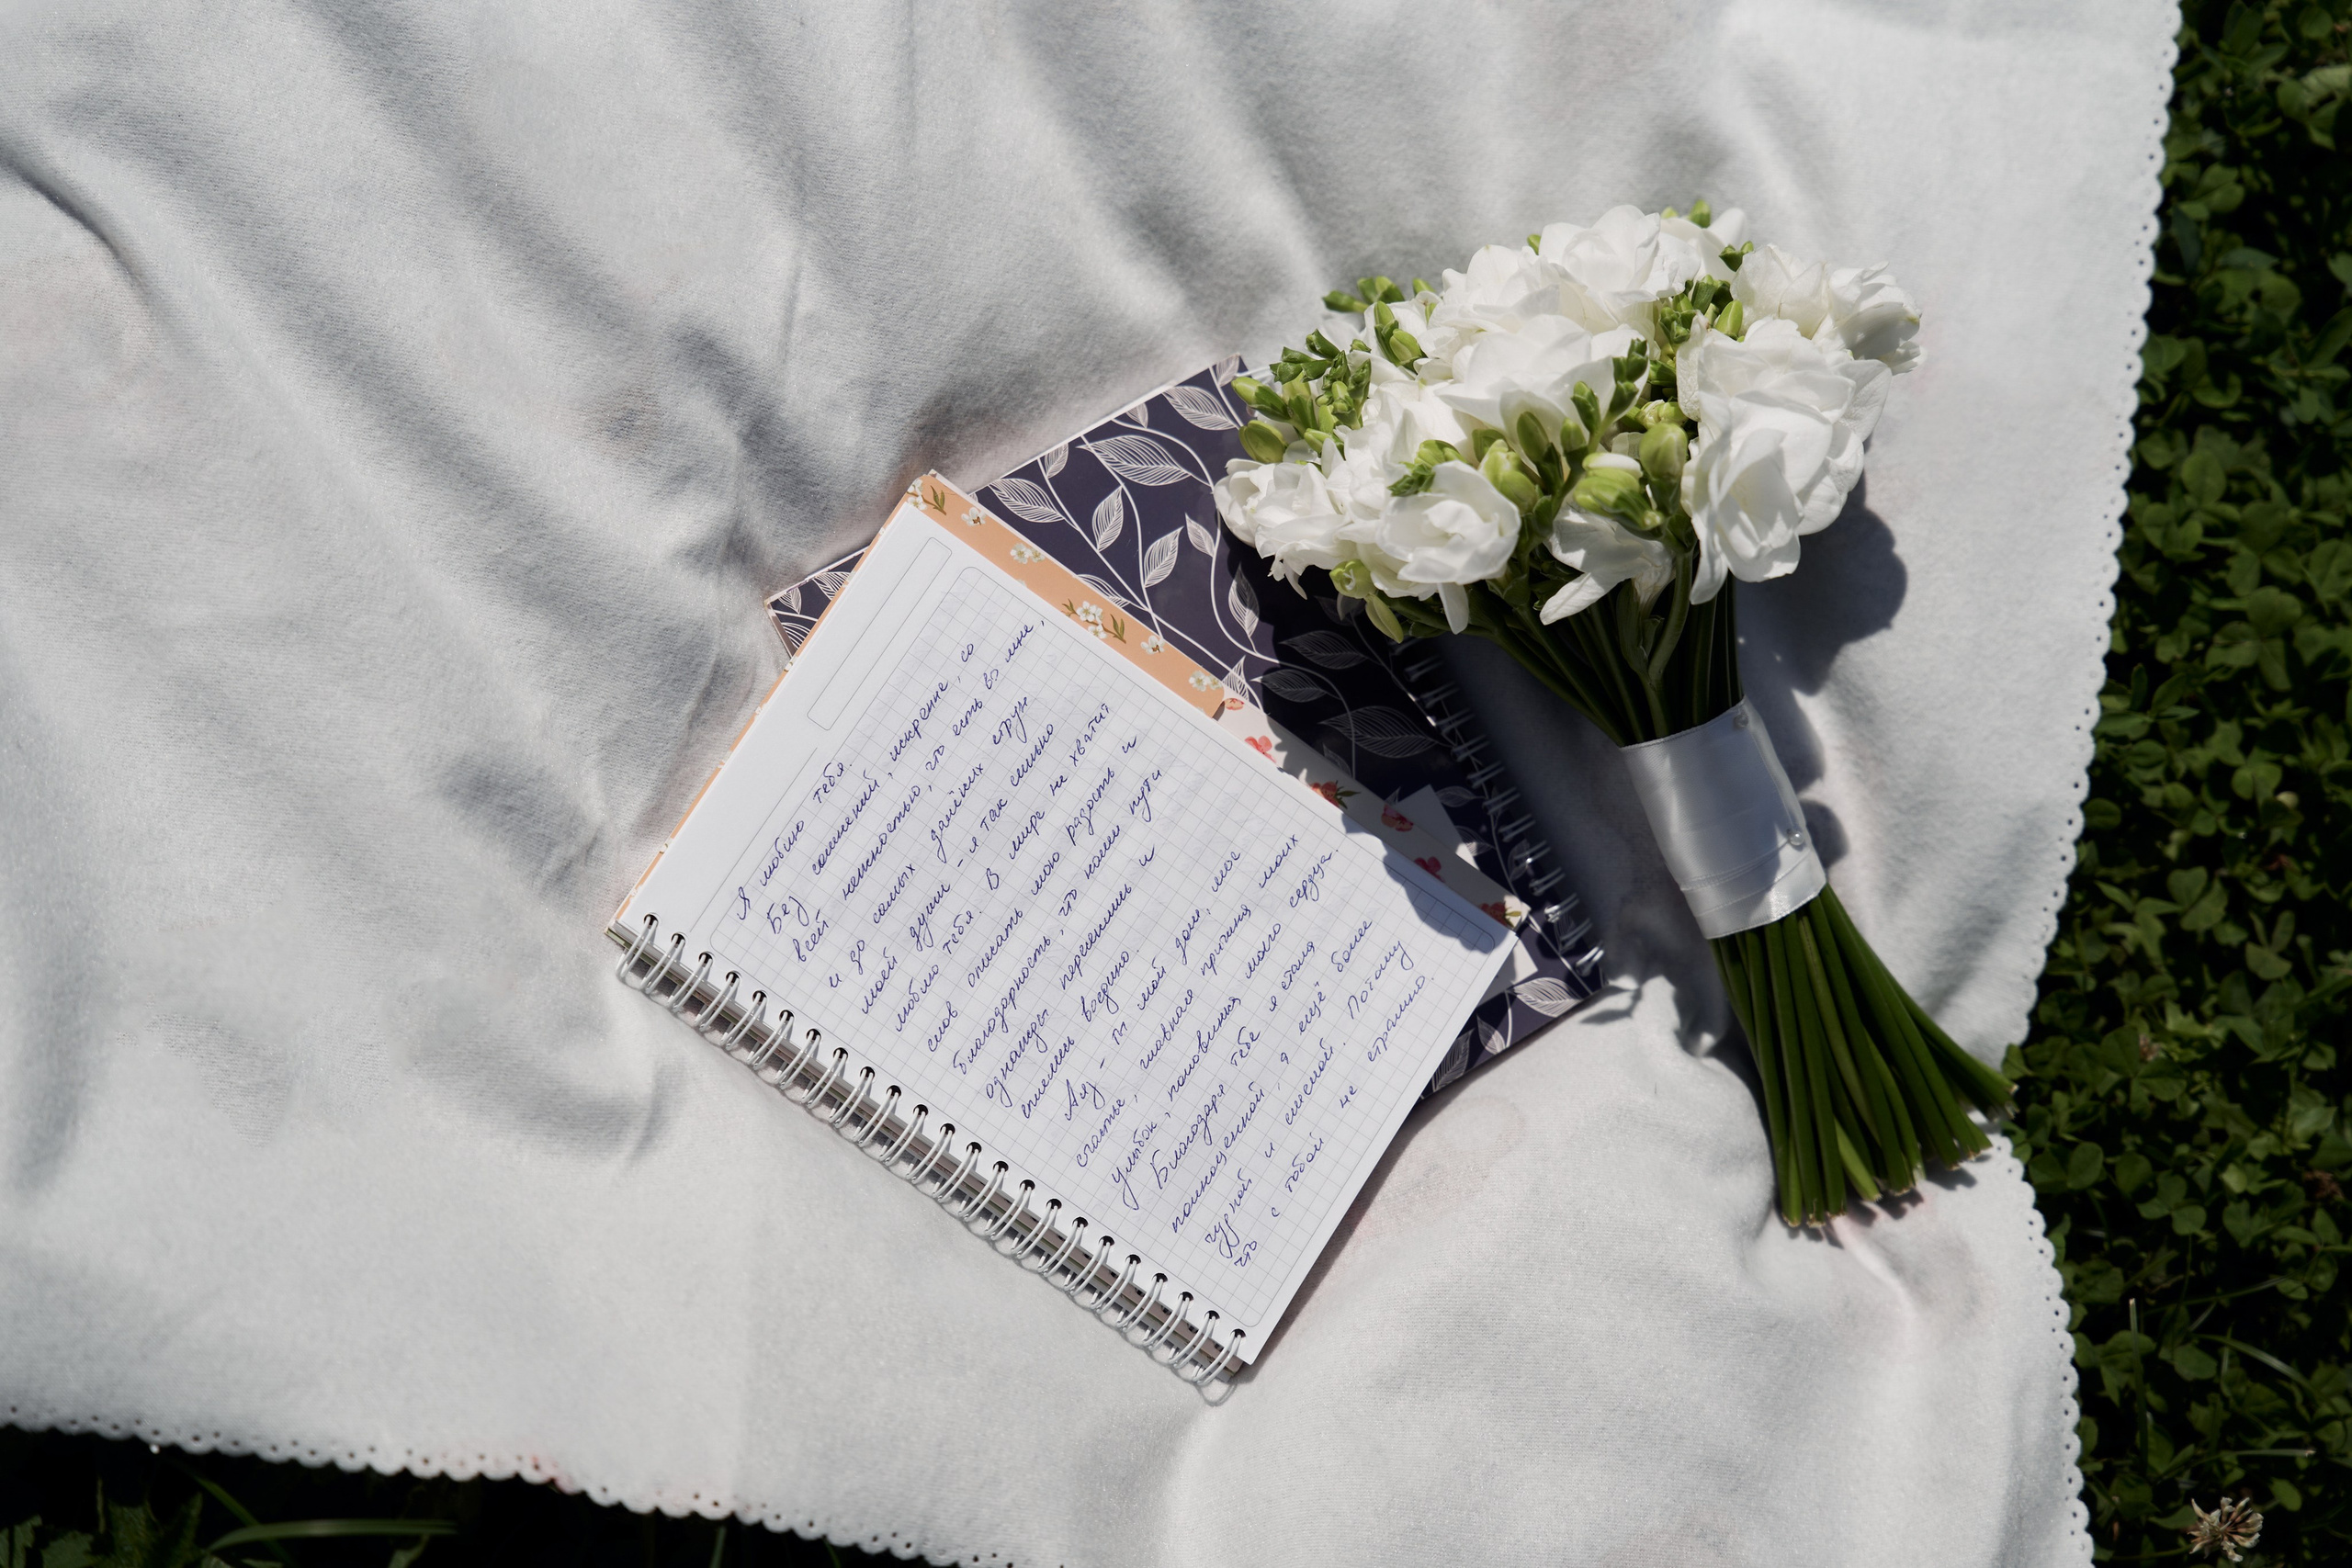 Я люблю тебя.
Без сомнений, искренне, со
всей нежностью, что есть во мне,
и до самых дальних струн
моей души - я так сильно
люблю тебя. В мире не хватит
слов описать мою радость и
благодарность, что наши пути
однажды пересеклись и
сплелись воедино.
- ты мой дом, моё
счастье, главная причина моих
улыбок, половинка моего сердца.
Благодаря тебе я стала
полноценной, а ещё более
чудной и смелой. Потому
что с тобой не страшно.